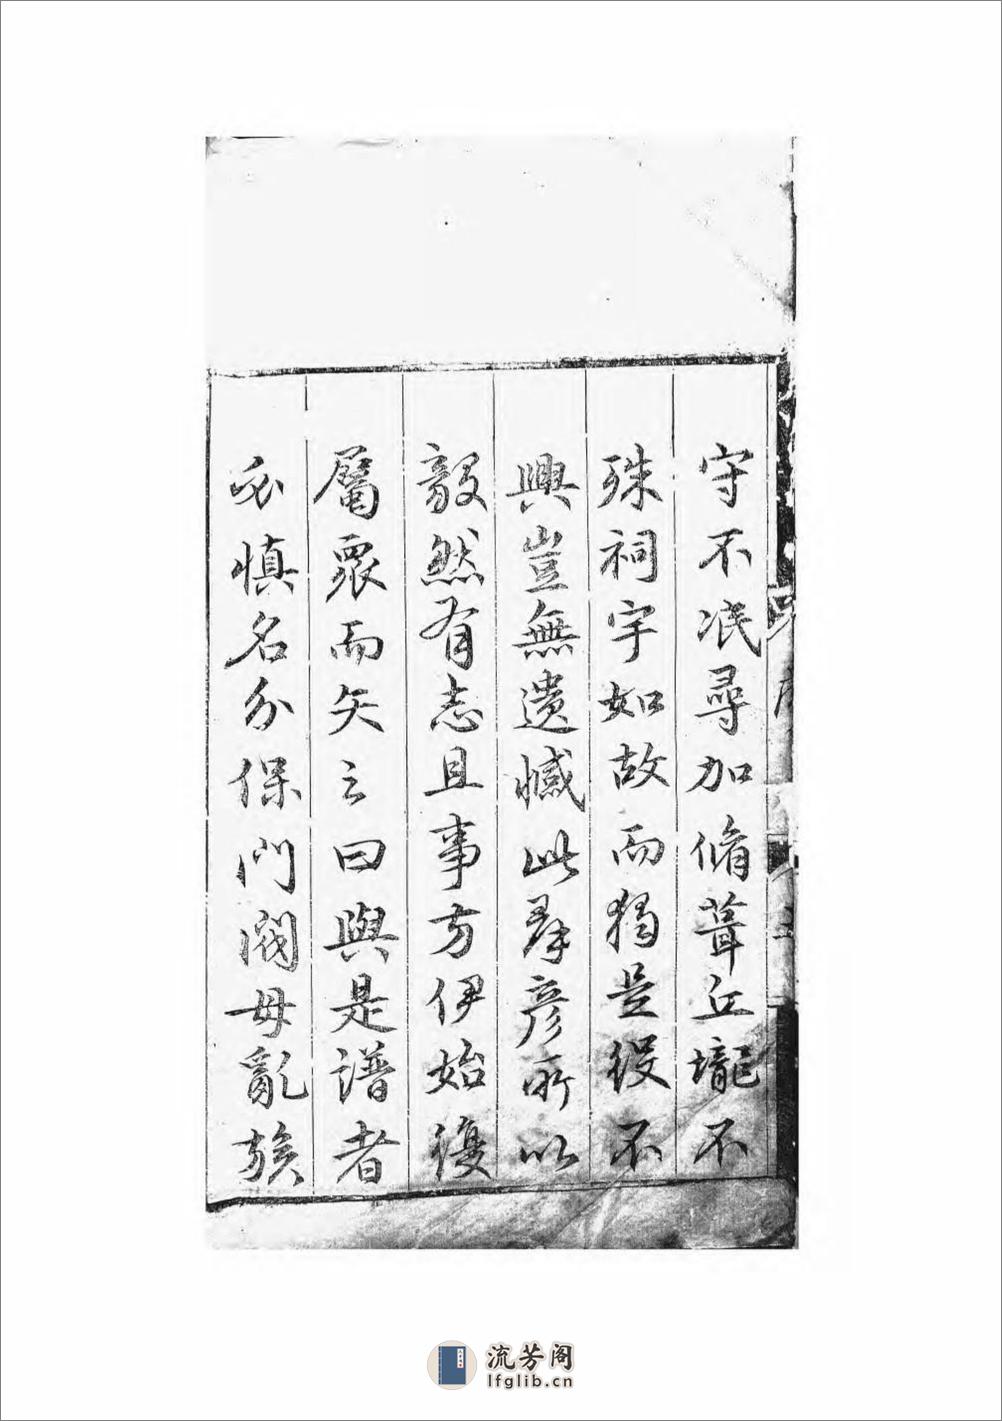 守不泯尋加脩葺丘壠不
殊祠宇如故而獨是役不
興豈無遺憾此羣彥所以
毅然有志且事方伊始復
屬衆而矢之曰與是譜者
必慎名分保門閥毋亂族
流芳阁
lfglib.cn